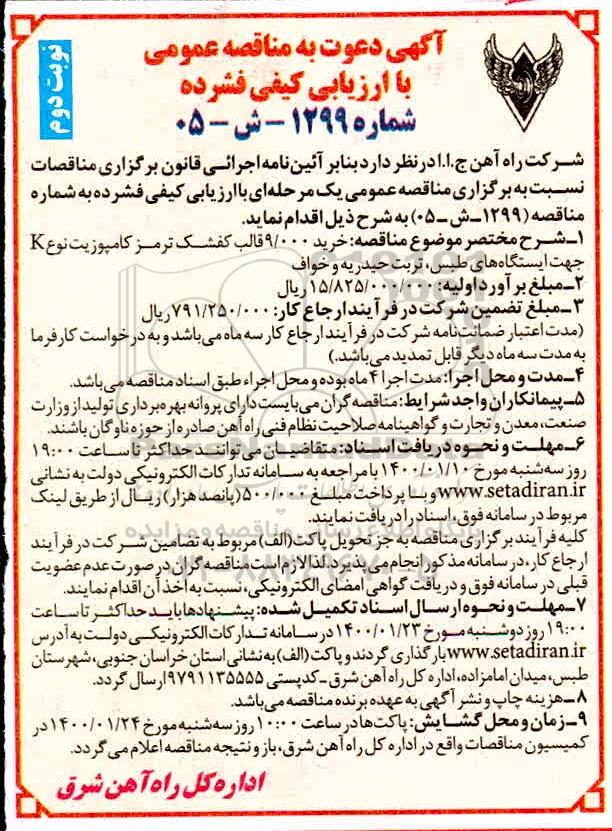 آگهی دعوت به مناقصه عمومی
با ارزیابی کیفی فشرده
شماره ۱۲۹۹ - ش - ۰۵
نوبت دوم
شرکت راه آهن ج.ا.ا در نظر دارد بنابر آئین‌نامه اجرائی قانون برگزاری مناقصات
نسبت به برگزاری مناقصه عمومی یک مرحله‌ای با ارزیابی کیفی فشرده به شماره
مناقصه (۱۲۹۹-ش-۰۵) به شرح ذیل اقدام نماید.
۱- شرح مختصر موضوع مناقصه: خرید ۹/۰۰۰ قالب کفشک ترمز کامپوزیت نوع K
جهت ایستگاه‌های طبس، تربت حیدریه و خواف
۲- مبلغ برآورد اولیه: ۱۵/۸۲۵/۰۰۰/۰۰۰ ریال
۳- مبلغ تضمین شرکت در فرآیند ارجاع کار: ۷۹۱/۲۵۰/۰۰۰ ریال
(مدت اعتبار ضمانت‌نامه شرکت در فرآیند ارجاع کار سه ماه می‌باشد و به درخواست کارفرما
به مدت سه ماه دیگر قابل تمدید می‌باشد.)
۴- مدت و محل اجرا: مدت اجرا ۴ ماه بوده و محل اجراء طبق اسناد مناقصه می‌باشد.
۵- پیمانکاران واجد شرایط: مناقصه گران می‌بایست دارای پروانه بهره برداری تولید از وزارت
صنعت، معدن و تجارت و گواهینامه صلاحیت نظام فنی راه آهن صادره از حوزه ناوگان باشند.
۶- مهلت و نحوه دریافت اسناد: متقاضیان می‌توانند حداکثر تا ساعت ۱۹:۰۰
روز سه‌شنبه مورخ ۱۴۰۰/۰۱/۱۰ با مراجعه به سامانه تدارکات الکترونیکی دولت به نشانی
www.setadiran.ir و با پرداخت مبلغ ۵۰۰/۰۰۰ (پانصد هزار) ریال از طریق لینک
مربوط در سامانه فوق، اسناد را دریافت نمایند.
کلیه فرآیند برگزاری مناقصه به جز تحویل پاکت (الف) مربوط به تضامین شرکت در فرآیند
ارجاع کار، در سامانه مذکور انجام می‌پذیرد. لذا لازم است مناقصه گران در صورت عدم عضویت
قبلی در سامانه فوق و دریافت گواهی امضای الکترونیکی، نسبت به أخذ آن اقدام نمایند.
۷- مهلت و نحوه ارسال اسناد تکمیل شده: پیشنهادها باید حداکثر تا ساعت
۱۹:۰۰ روز دوشنبه مورخ ۱۴۰۰/۰۱/۲۳ در سامانه تدارکات الکترونیکی دولت به آدرس
www.setadiran.ir بارگذاری گردند و پاکت (الف) به نشانی استان خراسان جنوبی، شهرستان
طبس، میدان امامزاده، اداره کل راه آهن شرق - کدپستی ۹۷۹۱۱۳۵۵۵۵ ارسال گردد.
۸- هزینه چاپ و نشر آگهی به عهده برنده مناقصه می‌باشد.
۹- زمان و محل گشایش: پاکت‌ها در ساعت ۱۰:۰۰ روز سه شنبه مورخ ۱۴۰۰/۰۱/۲۴ در
کمیسیون مناقصات واقع در اداره کل راه آهن شرق، باز و نتیجه مناقصه اعلام می‌گردد.
اداره کل راه آهن شرق